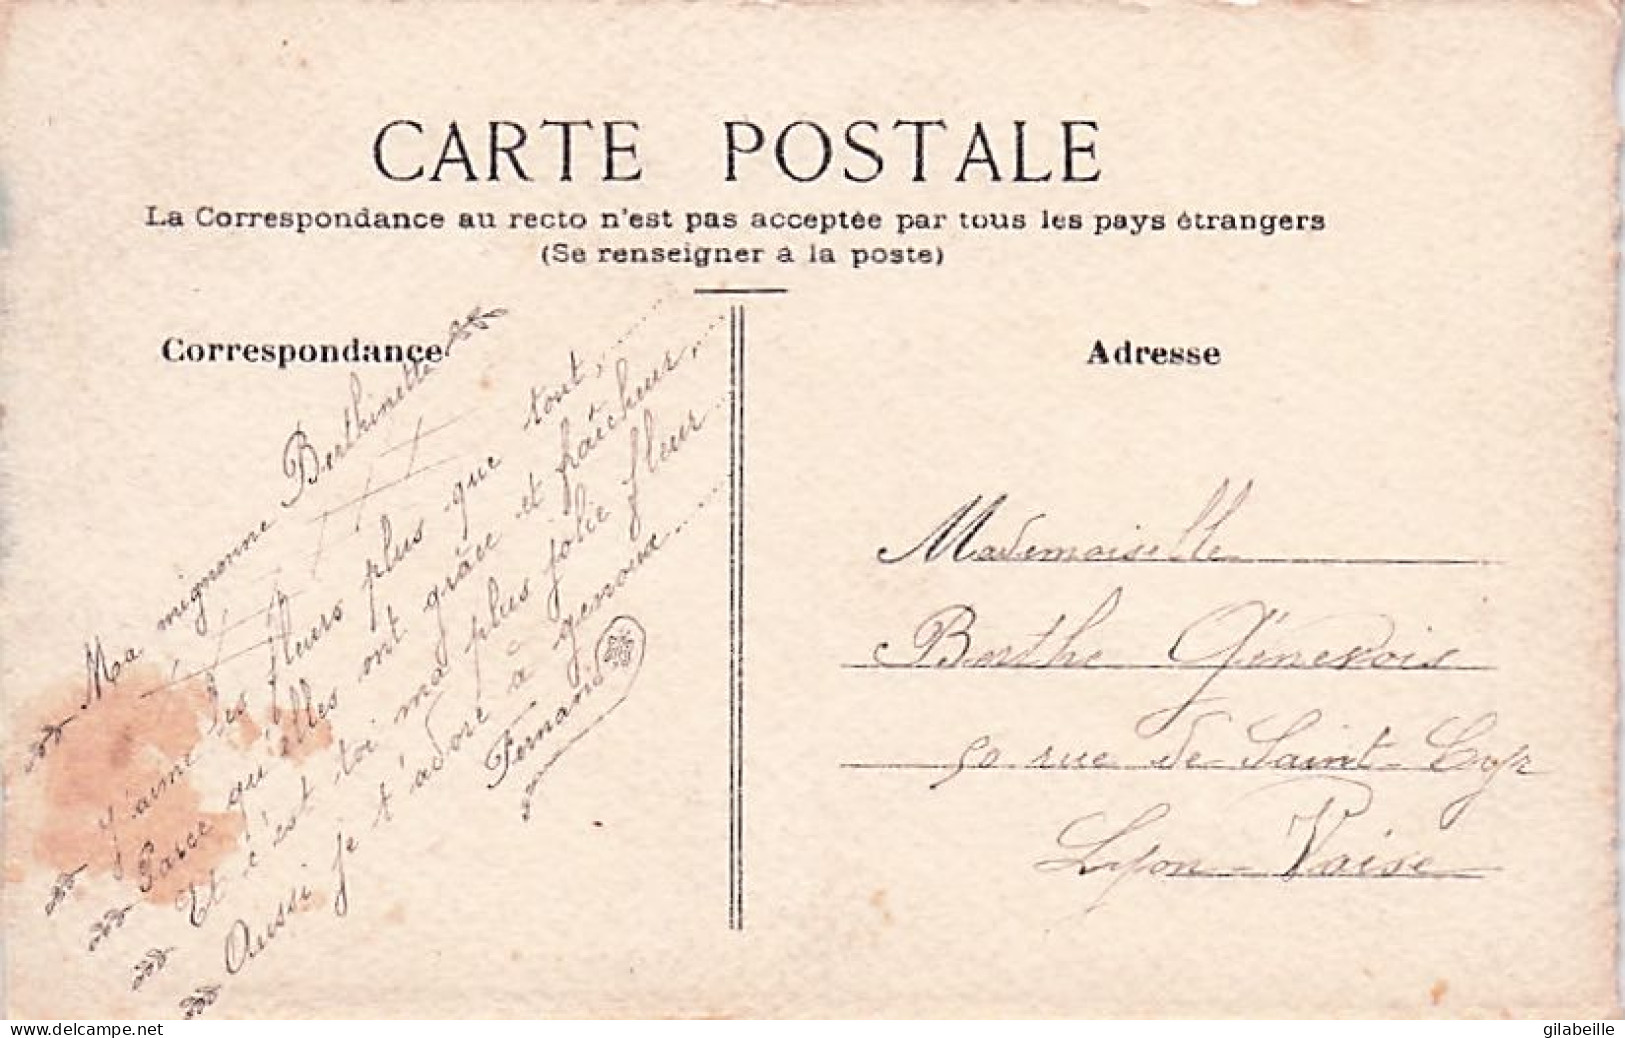 CARTE POSTALE
La Correspondance au recto n'est pas acceptée par tous les pays étrangers
(Se renseigner à la poste)
Correspondance
Ma mignonne Berthinette
J'aime les fleurs plus que tout,......
Parce qu'elles ont grâce et fraîcheur,....
Et c'est toi ma plus jolie fleur...
Aussi je t'adore à genoux......
Fernand
Adresse
Mademoiselle
Berthe Génevois
50 rue de Saint-Cyr
Lyon-Vaise
delcampe.net
gilabeille